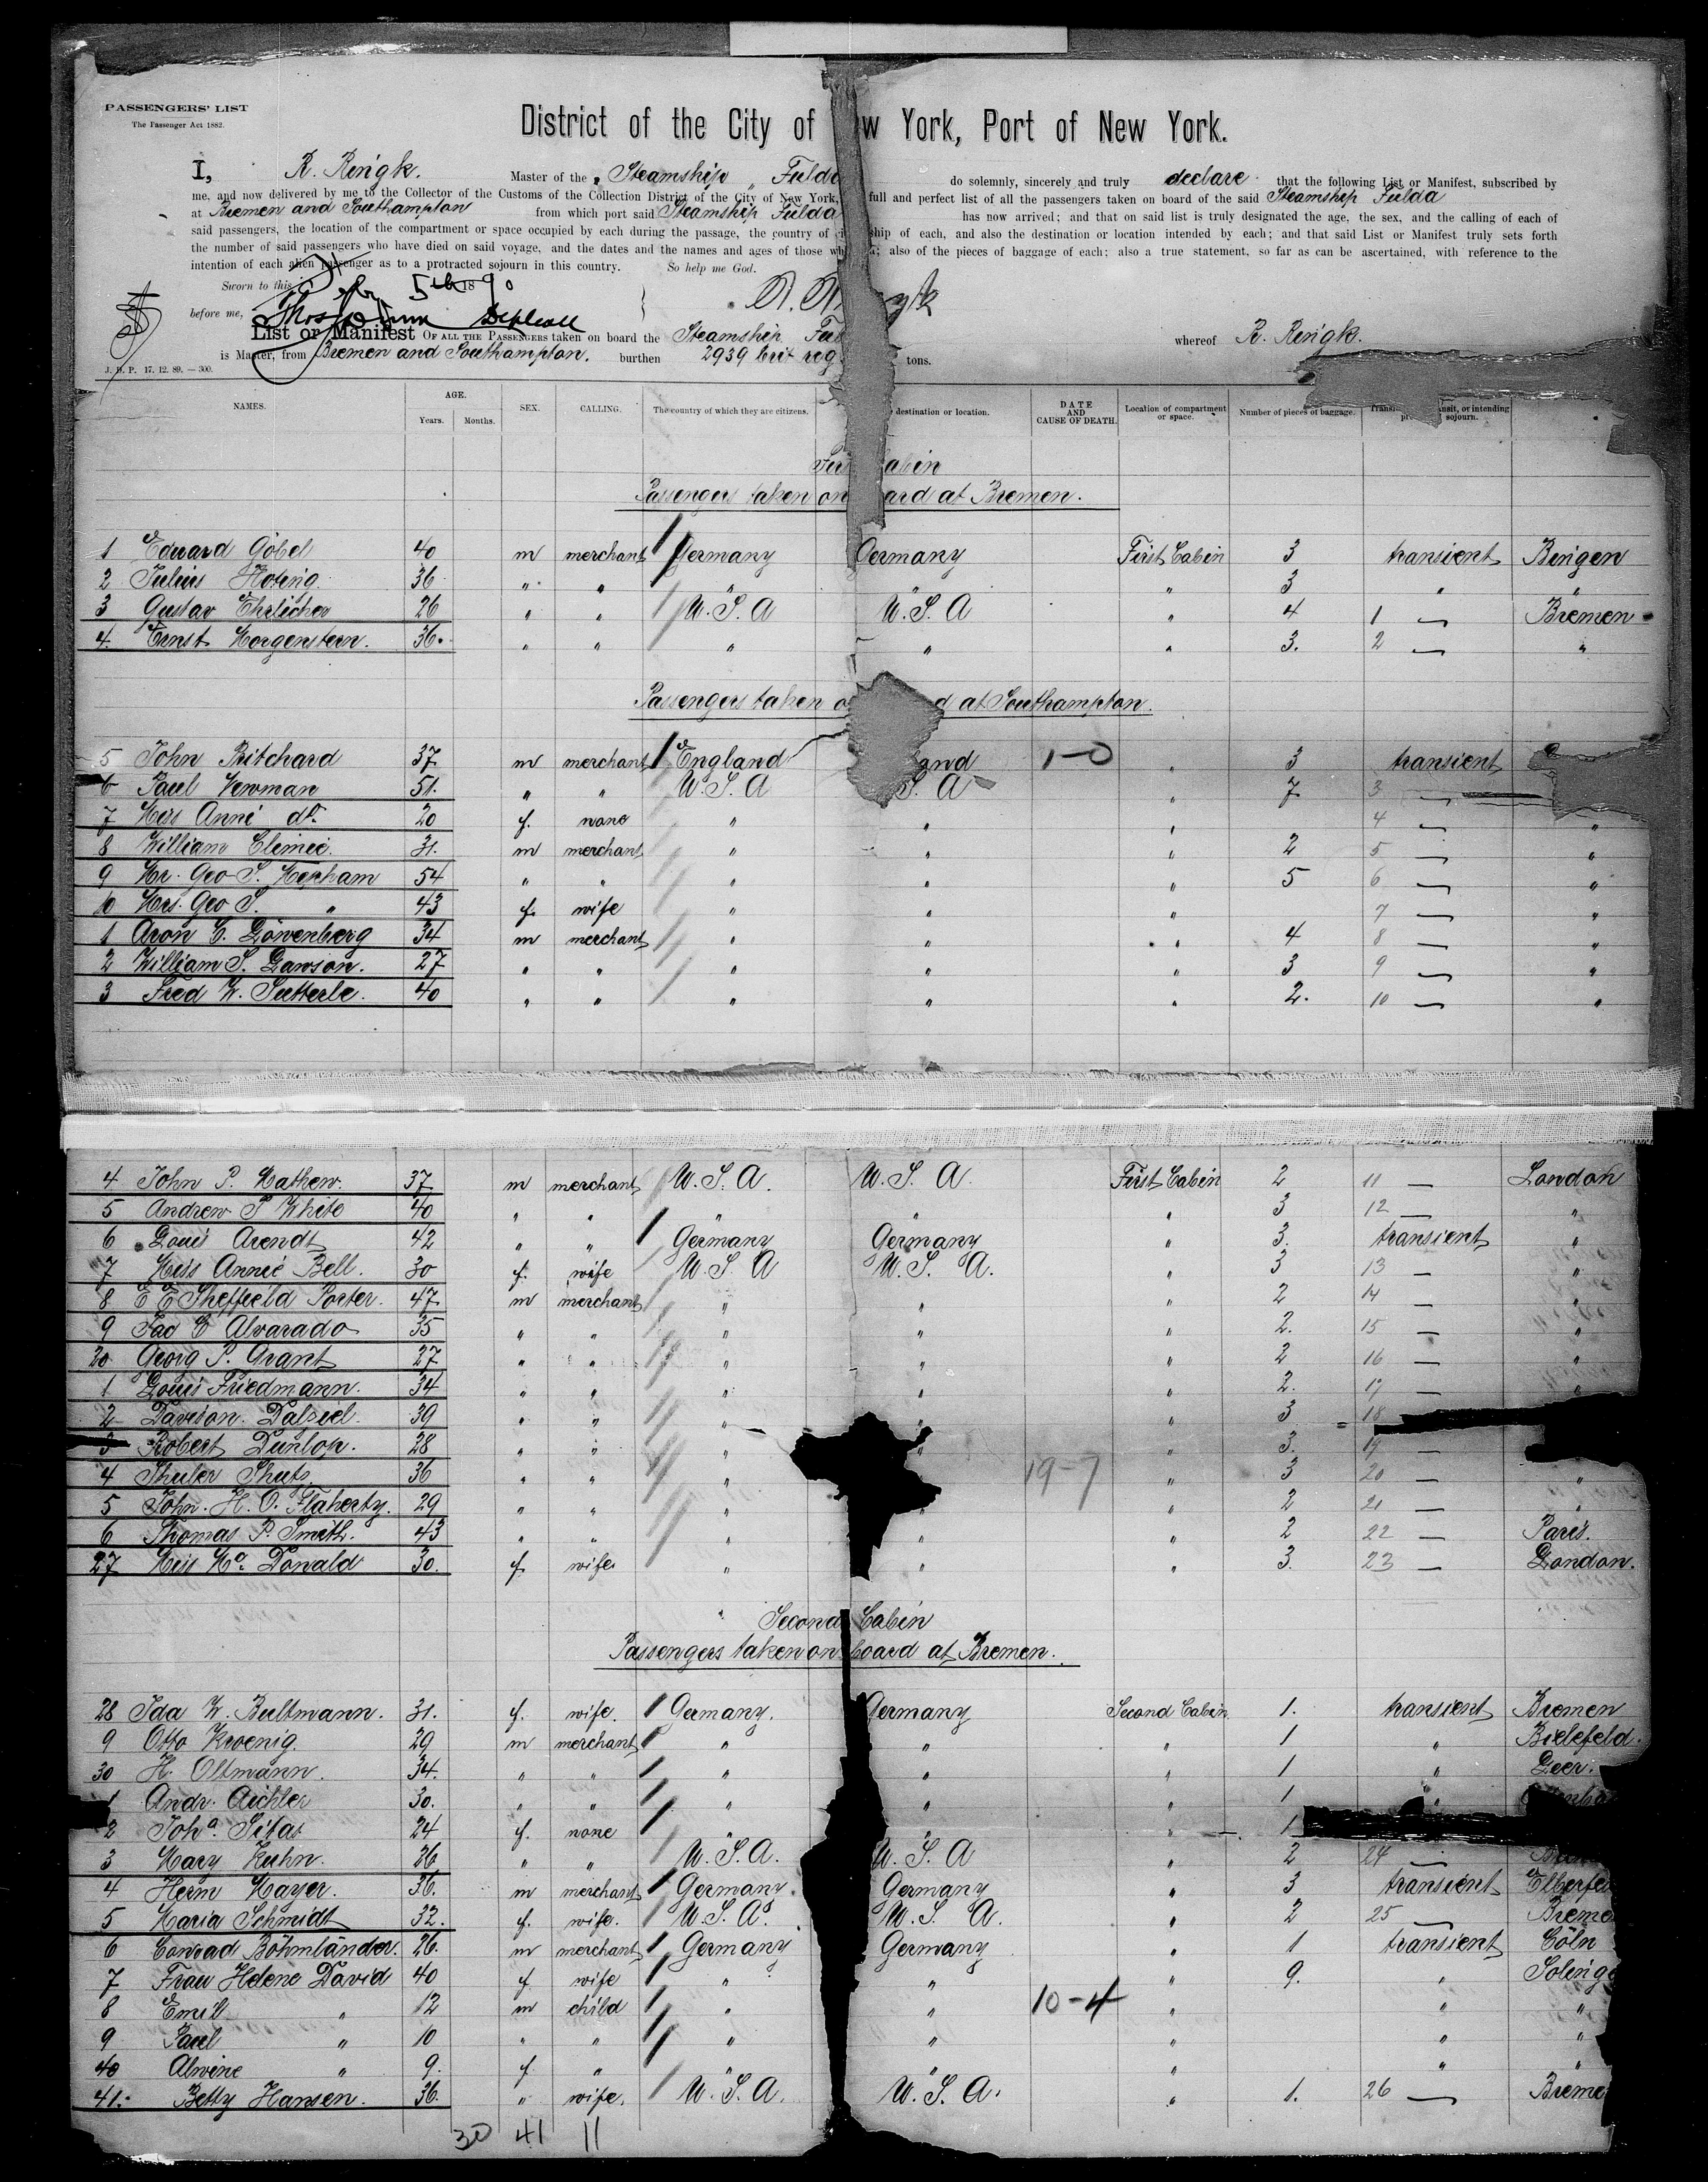 PASSENGERS' LIST
The Passenger Act 1882.
District of the City of w York, Port of New York.
I, R. Ringk. Master of the Steamship Fulda do solemnly, sincerely and truly declare that the following List or Manifest, subscribed by
me, and now delivered by me to the Collector of the Customs of the Collection District of the City of New York, full and perfect list of all the passengers taken on board of the said Steamship Fulda
at Bremen and Southampton from which port said Steamship Fulda has now arrived; and that on said list is truly designated the age, the sex, and the calling of each of
said passengers, the location of the compartment or space occupied by each during the passage, the country of ship of each, and also the destination or location intended by each; and that said List or Manifest truly sets forth
the number of said passengers who have died on said voyage, and the dates and the names and ages of those who ; also of the pieces of baggage of each; also a true statement, so far as can be ascertained, with reference to the
intention of each alien passenger as to a protracted sojourn in this country. So help me God.
Sworn to this 5th 1890
before me,
List or Manifest OF ALL THE PASSENGERS taken on board the Steamship Ful whereof R. Ringk.
is Master, from Bremen and Southampton. burthen 2939 brit reg. tons.
J. H. P. 17. 12. 89. — 300.
NAMES. AGE. Years. Months. SEX. CALLING. The country of which they are citizens. destination or location. DATE AND CAUSE OF DEATH. Location of compartment or space. Number of pieces of baggage. Trans nsit, or intending sojourn.
abin
Passengers taken on ard at Bremen.
1 Eduard Göbel 40 m merchant Germany Germany First Cabin 3 transient Bingen
2 Julius Hoting 36 " " " " " 3 " "
3 Gustav Ehrlicher 26 " " U.S.A U.S.A " 4 1 — Bremen
4. Ernst Morgenstern. 36. " " " " " 3. 2 — "
Passengers taken o d at Southampton.
5 John Pritchard 37 m merchant England and 1-0 " 3 transient
6 Paul Newman 51. " " U.S.A S.A " 7 3 —
7 Mrs Anni do. 20 f. none " " " 4 — "
8 William Climie. 31. m merchant " " " 2 5 — "
9 Mr. Geo S. Mepham 54 " " " " " 5 6 — "
10 Mrs. Geo S. " 43 f. wife " " " 7 — "
1 Aron C. Löwenberg 34 m merchant " " " 4 8 — "
2 William S. Lawson. 27 " " " " " 3 9 — "
3 Fred W. Sutterle. 40 " " " " " 2. 10 — "
4 John P. Mathew. 37 m merchant U.S.A. U.S.A. First Cabin 2 11 — London
5 Andrew S White 40 " " " " " 3 12 — "
6 Louis Arendt 42 " " Germany Germany " 3. transient "
7 Miss Annie Bell. 30 f. wife U.S.A U.S.A. " 3 13 — "
8 E E Sheffield Porter. 47 m merchant " " " 2 14 — "
9 Jao C Alvarado 35 " " " " " 2. 15 — "
20 Georg P. Grant 27 " " " " " 2 16 — "
1 Louis Friedmann. 34 " " " " " 2. 17 — "
2 Davison. Dalziel. 39 " " " " " 3 18
3 Robert Dunlop. 28 " " " " " 3. 19 —
4 Shuler Shutz. 36 " " " 19-7 " 3 20 — "
5 John. H. O. Flaherty. 29 " " " " 2 21 — "
6 Thomas P. Smith. 43 " " " " " 2 22 — Paris.
27 Miss Mc. Donald 30. f. wife " " " 3. 23 — London.
Second Cabin
Passengers taken on board at Bremen.
28 Ida W. Bultmann. 31. f. wife. Germany. Germany Second Cabin 1. transient Bremen
9 Otto Kroenig. 29 m merchant " " " 1 " Bielefeld.
30 H. Oltmann. 34. " " " " " 1 " Leer.
1 Andr. Aichler 30. " " " " " 1 "
2 Joha. Silas 24 f. none " " " 1
3 Mary Kuhn. 26 " " U.S.A. U.S.A " 2 24 —
4 Herm Mayer. 36. m merchant Germany. Germany " 3 transient Elberfe
5 Maria Schmidt 32. f. wife. U.S.A. U.S.A. " 2 25 — Breme
6 Conrad Böhmländer. 26. m merchant Germany Germany " 1 transient Cöln
7 Frau Helene David 40 f wife " " " 9. " Solinge
8 Emill " 12 m child " " 10-4 " " "
9 Paul " 10 " " " " " " "
40 Alwine " 9. f " " " " " "
41. Betty Hansen. 36. " wife. U.S.A. U.S.A. " 1. 26 — Breme
30 41 11